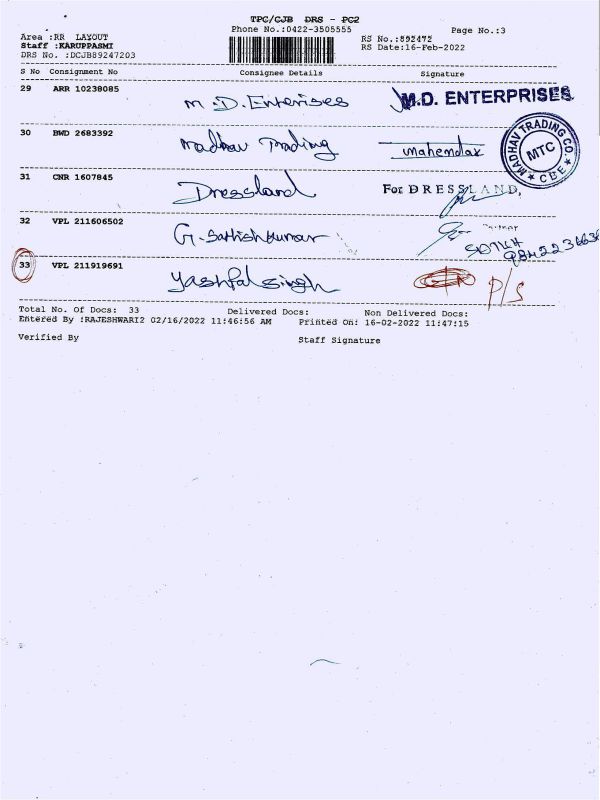 TPC/CJB DRS - PC2
Phone No.:0422-3505555
Page No.:3
Area :RR LAYOUT
RS No.:892472
Staff :KARUPPASMI
RS Date:16-Feb-2022
DRS No. :DCJB89247203
S No Consignment No Consignee Details Signature
29 ARR 10238085 M.D. Enterises M.D. ENTERPRISES
30 BWD 2683392 Madhav Trading Mahendar
MADHAV TRADING CO. MTC CBE
31 CNR 1607845 Dressland For DRESSLAND,
Partner
32 VPL 211606502 G. Sathishkumar
33 VPL 211919691 Yashpal Singh P/S
Total No. Of Docs: 33 Delivered Docs: Non Delivered Docs:
Entered By :RAJESHWARI2 02/16/2022 11:46:56 AM Printed On: 16-02-2022 11:47:15
Verified By Staff Signature